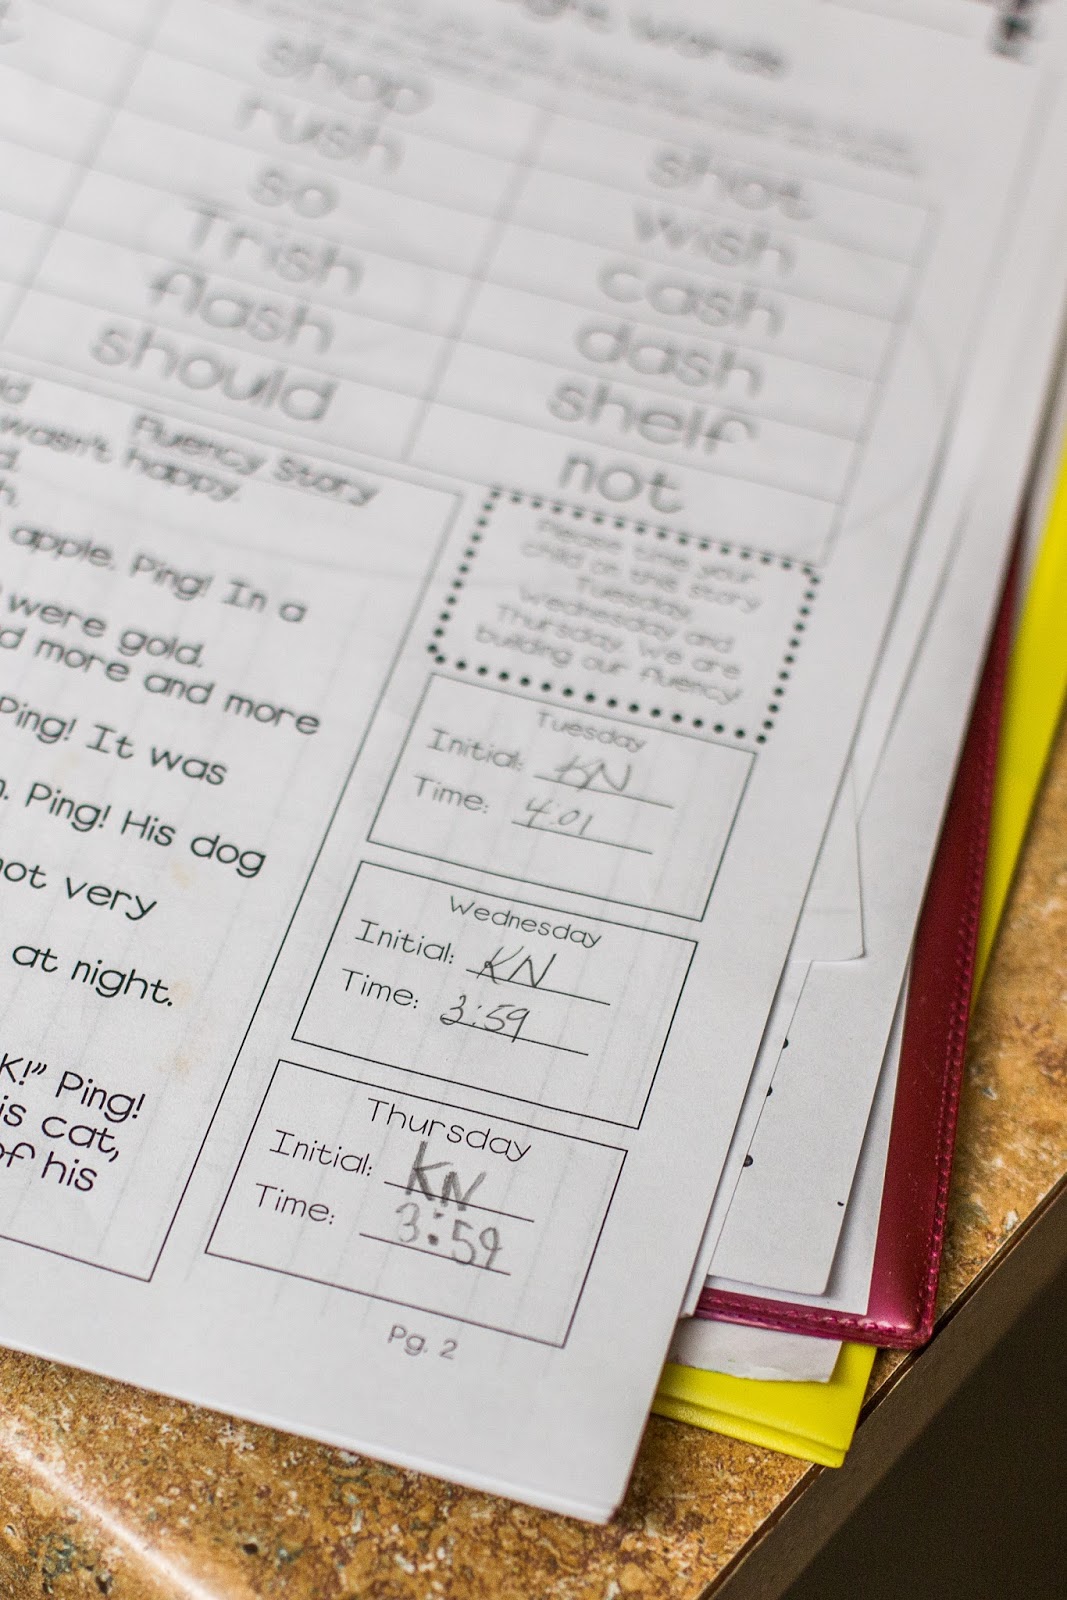 words
shop
rush
so
Trish
flash
should
shot
wish
cash
dash
shelf
not
Fluency Story
wasn't happy.
apple. Ping! In a
were gold.
more and more
Ping! It was
Ping! His dog
not very
at night.
K!" Ping!
is cat,
of his
Please time your
child on this story
Tuesday,
Wednesday and
Thursday. We are
building our fluency!
Tuesday
Initial: KN
Time: 4:01
Wednesday
Initial: KN
Time: 3:59
Thursday
Initial: KN
Time: 3:59
Pg. 2